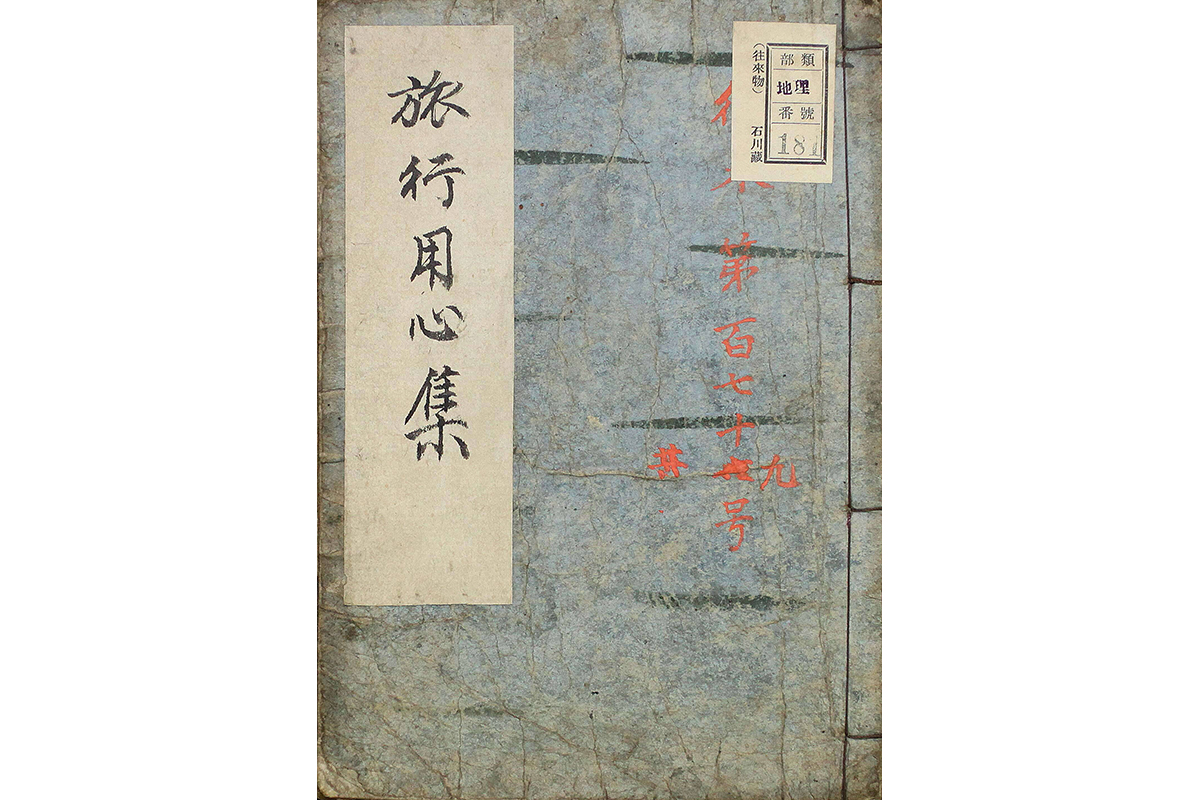 旅行用心集
類部
地理
番號
181
(往來物)
石川藏
第百七十七号
九
共